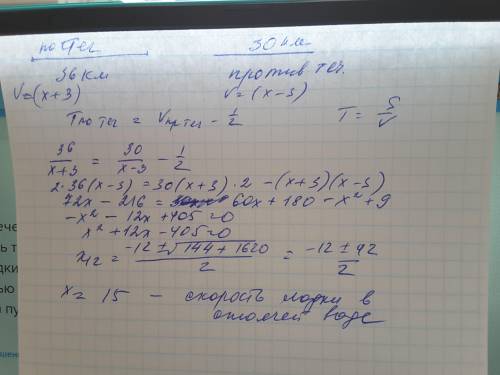 по теч 30 км
36 км против теч.
V=(x+3) V=(x-3)
Tпо теч = Vпр теч - 1/2 T = S/V
36/(x+3) = 30/(x-3) - 1/2
2·36(x-3) = 30(x+3)·2 -(x+3)(x-3)
72x - 216 = 60x + 180 - x² + 9
-x² - 12x + 405 = 0
x² + 12x - 405 = 0
x₁₂ = (-12 ± √144 + 1620)/2 = (-12 ± 42)/2
x = 15 - скорость лодки в
стоячей воде